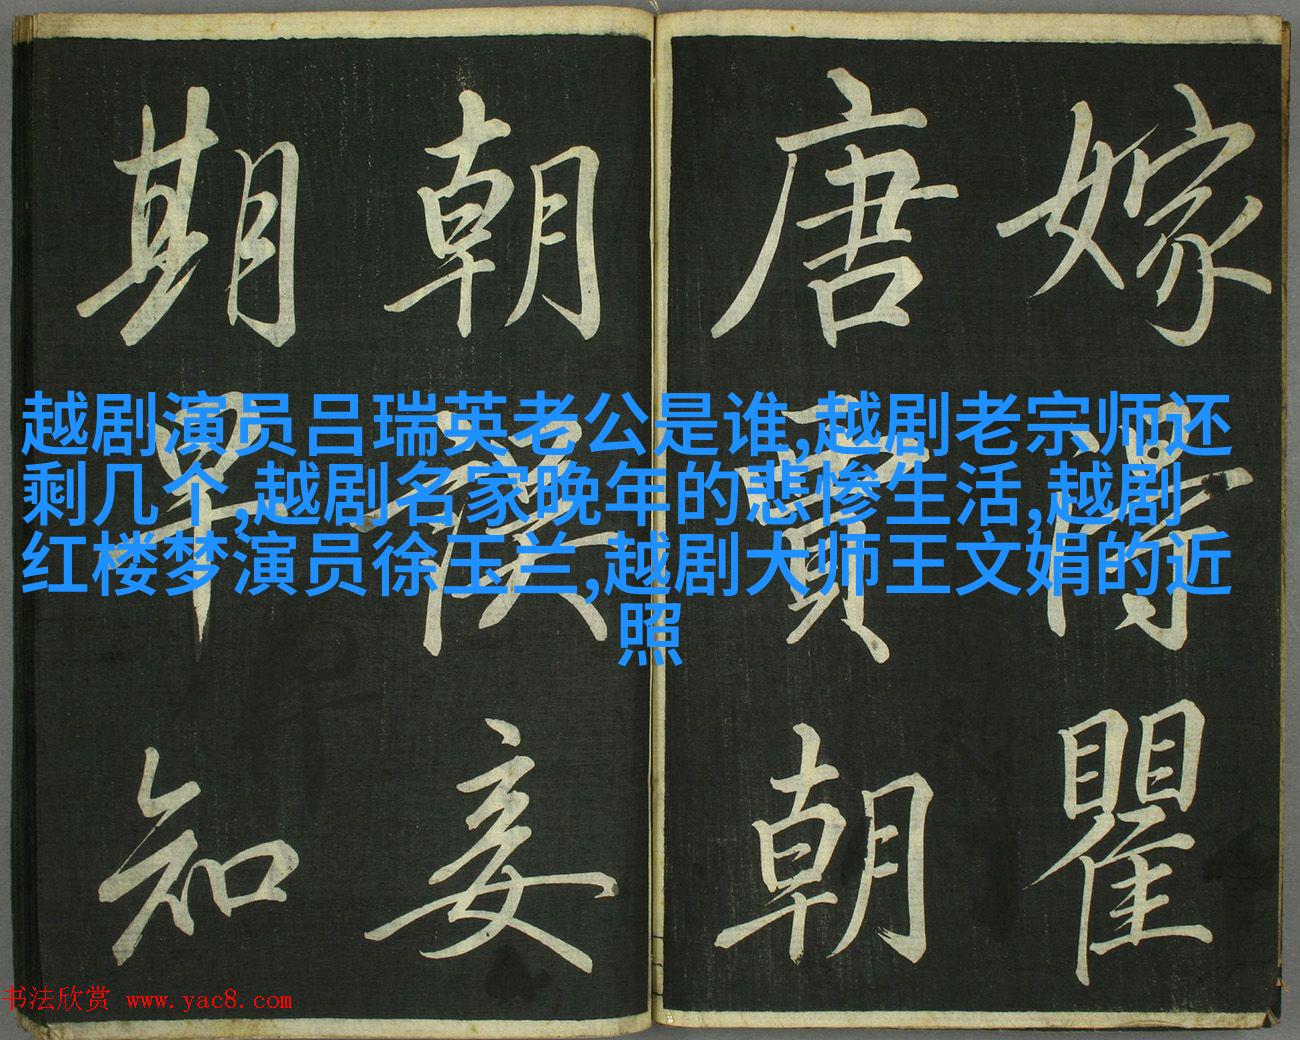 嫁得瞿
唐賈朝
朝誤妾
期早知
越剧演员吕瑞英老公是谁,越剧老宗师还
剩几个,越剧名家晚年的悲惨生活,越剧
红楼梦演员徐玉兰,越剧大师王文娟的近
照
书法欣赏 www.yac8.com